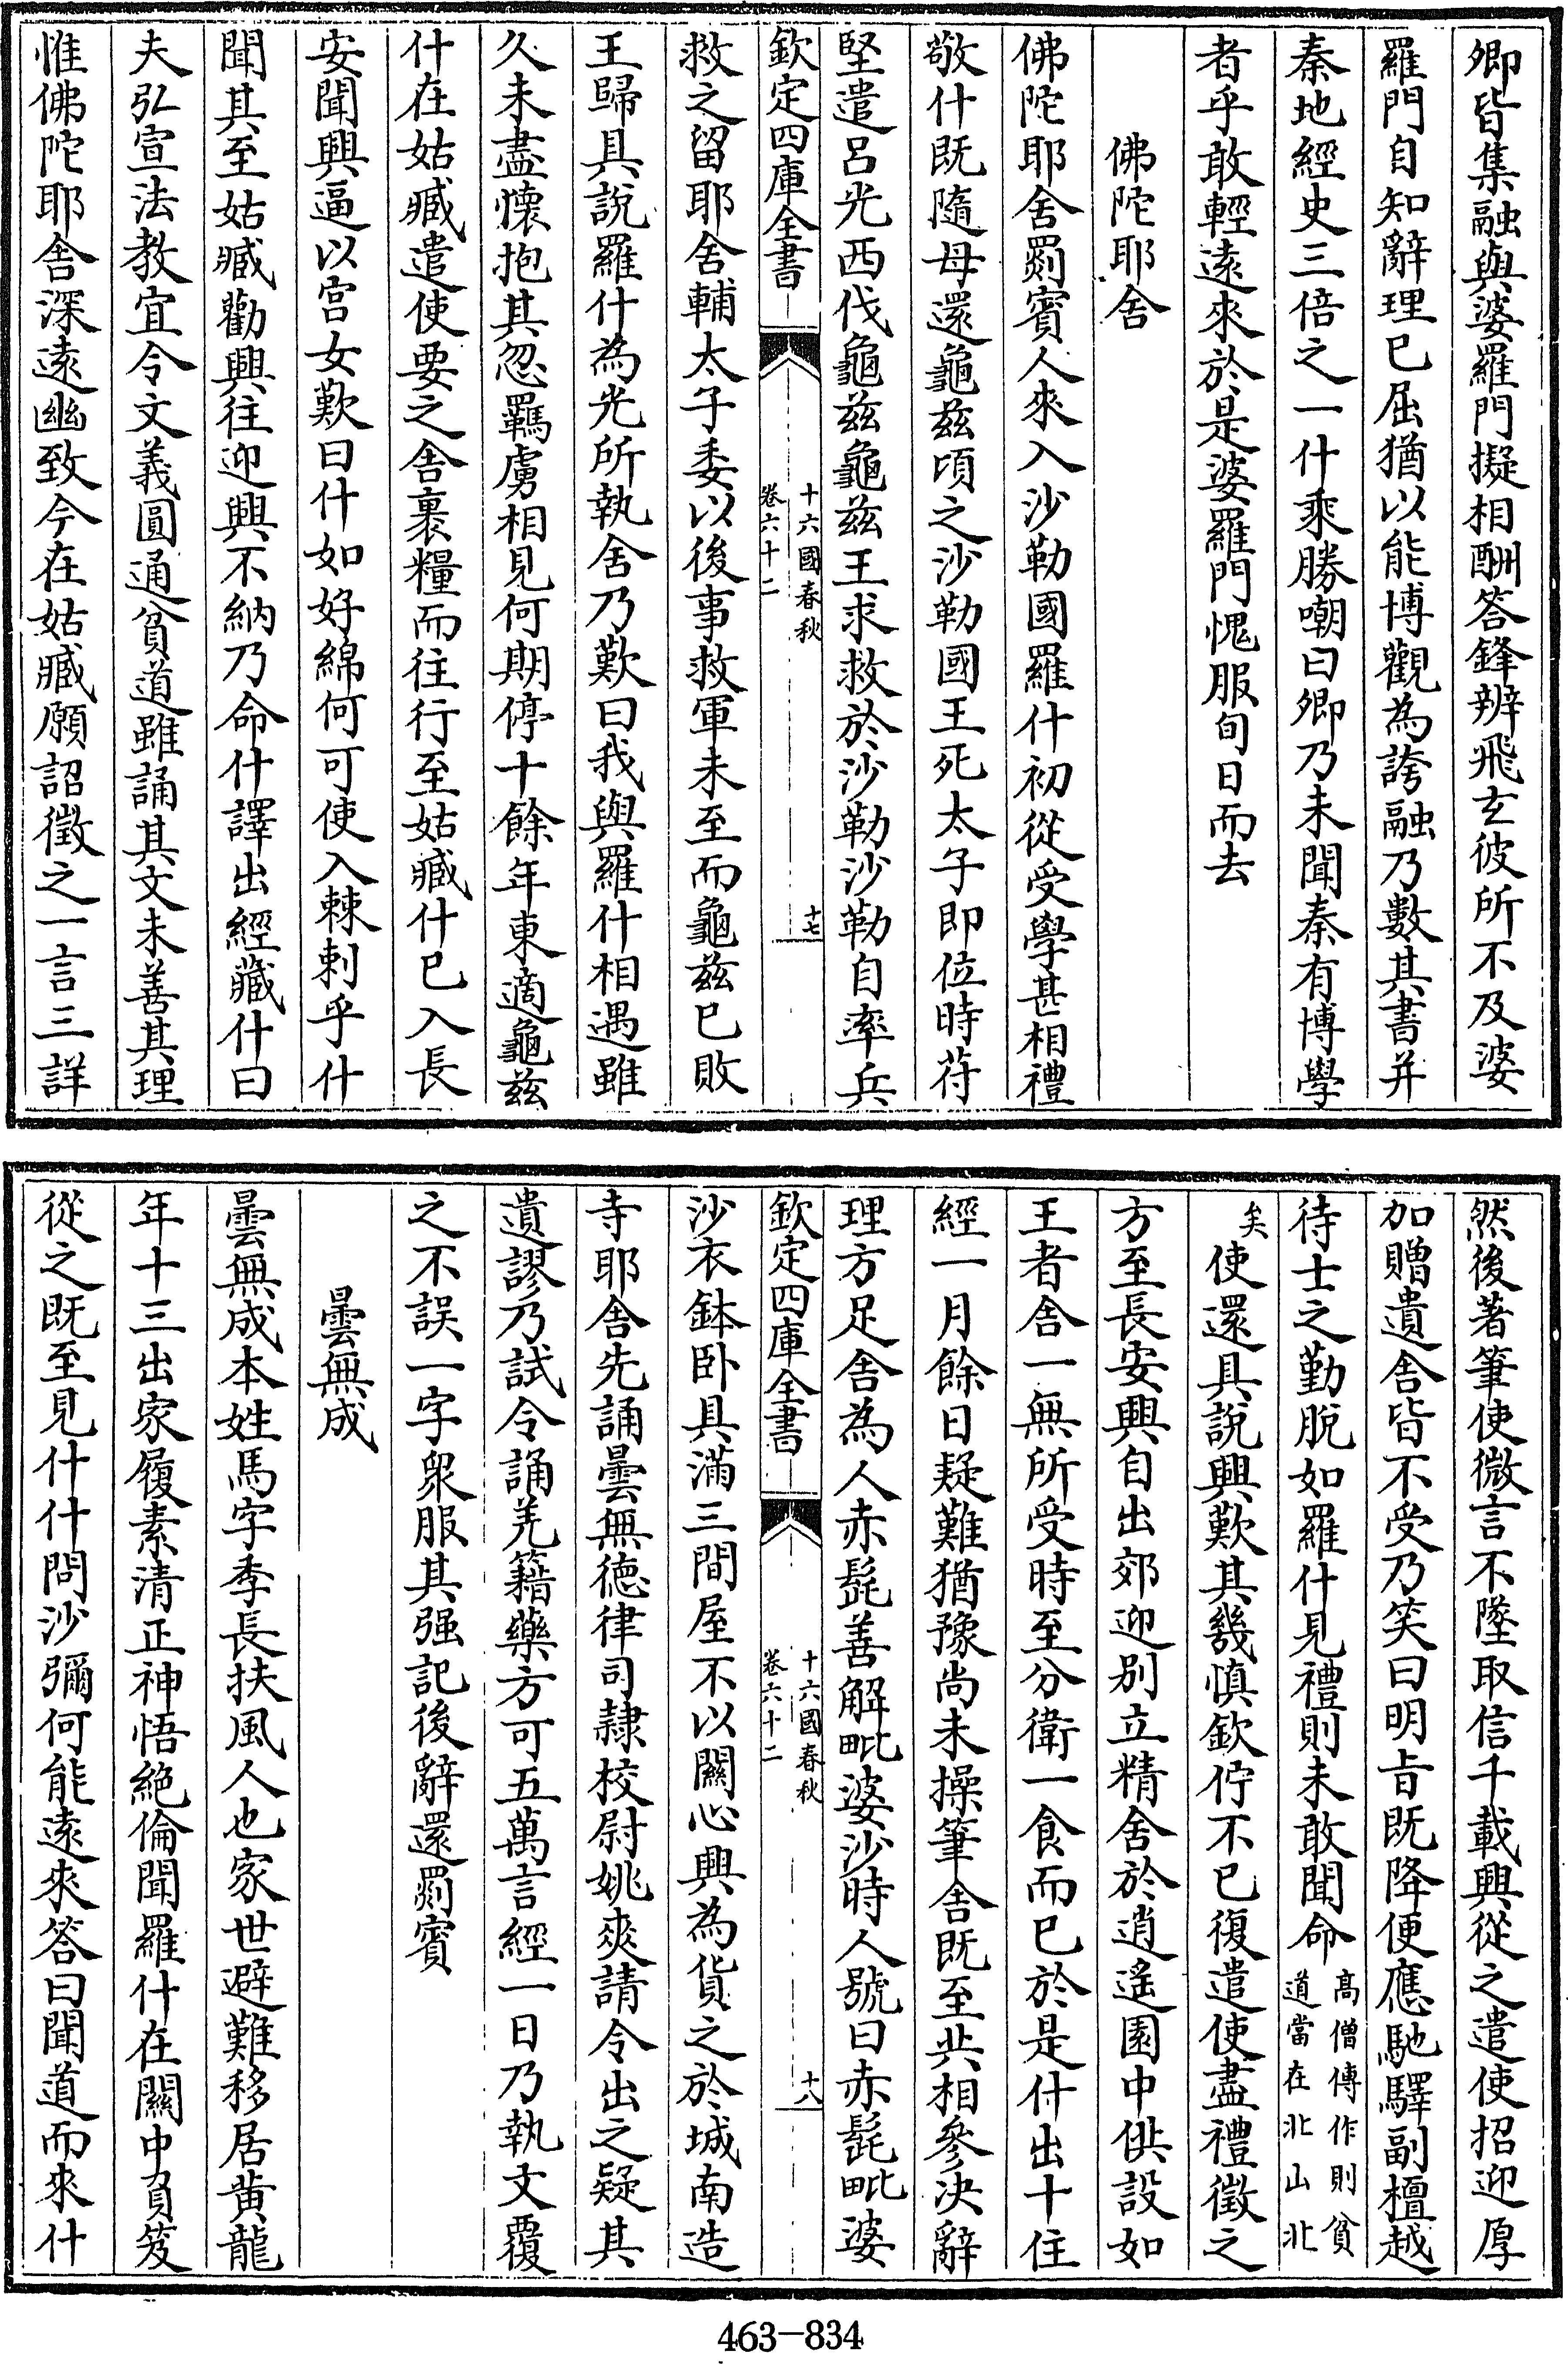 卿皆集融與婆羅門擬相酬答鋒辨飛玄彼所不及婆
羅門自知辭理已屈猶以能博觀為誇融乃數其書并
秦地經史三倍之一什乘勝嘲曰卿乃未聞秦有博學
者乎敢輕遠來於是婆羅門愧服旬日而去
佛陀耶舍
佛陀耶舍罽賓人來入沙勒國羅什初從受學甚相禮
敬什既隨母還龜茲頃之沙勒國王死太子即位時苻
堅遣呂光西伐龜茲龜茲王求救於沙勒沙勒自率兵
欽定四庫全書
十六國春秋
卷六十二
十七
救之留耶舍輔太子委以後事救軍未至而龜茲已敗
王歸具說羅什為光所執舍乃歎曰我與羅什相遇雖
久未盡懷抱其忽羈虜相見何期停十餘年東適龜茲
什在姑臧遣使要之舍裹糧而往行至姑臧什已入長
安聞興逼以宮女歎曰什如好綿何可使入棘刺乎什
聞其至姑臧勸興往迎興不納乃命什譯出經藏什曰
夫弘宣法教宜令文義圓通貧道雖誦其文未善其理
惟佛陀耶舍深遠幽致今在姑臧願詔徵之一言三詳
然後著筆使微言不墜取信千載興從之遣使招迎厚
加贈遺舍皆不受乃笑曰明旨既降便應馳驛副檀越
待士之勤脫如羅什見禮則未敢聞命高僧傳作則貧道當在北山北
矣使還具說興歎其幾慎欽佇不已復遣使盡禮徵之
方至長安興自出郊迎別立精舍於逍遙園中供設如
王者舍一無所受時至分衛一食而已於是什出十住
經一月餘日疑難猶豫尚未操筆舍既至共相參決辭
理方足舍為人赤髭善解毗婆沙時人號曰赤髭毗婆
欽定四庫全書
十六國春秋
卷六十二
十八
沙衣鉢卧具滿三間屋不以關心興為貨之於城南造
寺耶舍先誦曇無德律司隸校尉姚爽請令出之疑其
遺謬乃試令誦羌籍藥方可五萬言經一日乃執文覆
之不誤一字衆服其强記後辭還罽賓
曇無成
曇無成本姓馬字季長扶風人也家世避難移居黃龍
年十三出家履素清正神悟絕倫聞羅什在關中負笈
從之既至見什什問沙彌何能遠來答曰聞道而來什
463-834